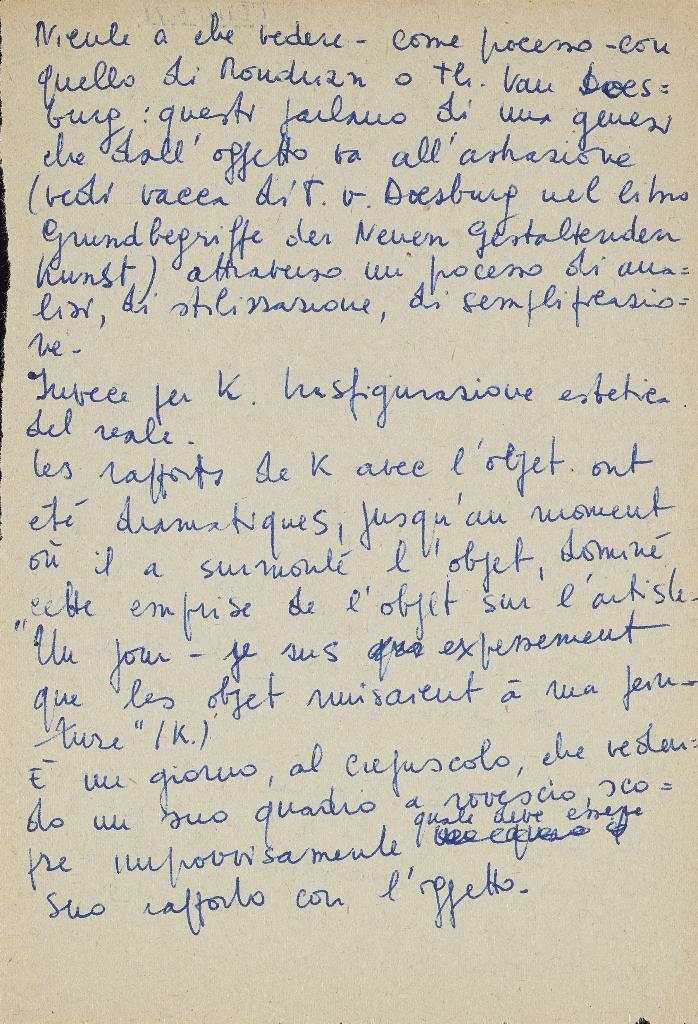 Niente a che vedere - come processo - con
quello di Mondrian o Th. Van Does=
burg : questi parlano di una genesi
che dall'oggetto va all'astrazione
(vedi vacca di T. v. Doesburg nel libro
Grundbegriffe der Neuen Gestaltenden
Kunst) attraverso un processo di ana=
lisi, di stilizzazione, di semplificazio=
ne -
Invece per K. trasfigurazione estetica
del reale.
Les rapports de K avec l'objet ont
eté dramatiques, jusqu'au moment
où il a surmonté l'objet, dominé
cette emprise de l'objet sur l'artiste -
"Un jour - je sus expressement
que les objet nuisaient à ma pein-
-ture" (K.)
È un giorno, al crepuscolo, che veden=
do un suo quadro a rovescio, sco=
pre improvvisamente quale deve essere
suo rapporto con l'oggetto -